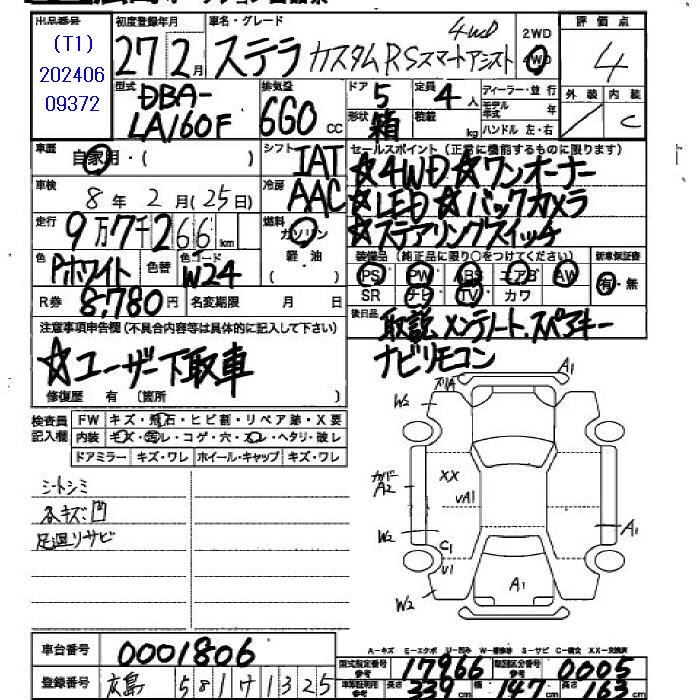 出品番号 初度登録年月 車名・グレード 評価点
(T1)
202406
09372
27年2月 ステラ カスタムRSスマートアシスト 4WD 2WD 4WD 4
型式 DBA-LA160F 排気量 660cc ドア 5 定員 4人 ディーラー・並行
形状 箱 積載 kg モデル年式 年 ハンドル 左・右 外装 内装 C
車歴 自家用・( ) シフト IAT
車検 8年2月(25日) 冷房 AAC
走行 9万7千266km 燃料 ガソリン 軽油 ( )
色 Pホワイト 色替 色コード W24
R券 8,780円 名変期限 月 日
セールスポイント(正常に機能するものに限ります)
☆4WD☆ワンオーナー
☆LED☆バックカメラ
☆ステアリングスイッチ
装備品(純正品に限り○をつけてください) 新車保証書
PS PW ABS エアB AW 有・無
SR ナビ TV カワ
後日品 取説 メンテノート.スペアキー
ナビリモコン
注意事項申告欄(不具合内容等は具体的に記入して下さい)
☆ユーザー下取車
修復歴 有 〔箇所 〕
検査員記入欄
FW キズ・飛石・ヒビ割・リペア跡・X要
内装 キズ・汚レ・コゲ・穴・スレ・ヘタリ・破レ
ドアミラー キズ・ワレ ホイール・キャップ キズ・ワレ
シートシミ
各キズ凹
足廻リサビ
A1
W2
カバーA2
XX
UA1
W2
A1
C1
U1
W2
A1
A-キズ E-エクボ U-凹み W-補修跡 S-サビ C-腐食 XX-交換済
車台番号 0001806
型式指定番号 参考 17966 類別区分番号 参考 0005
登録番号 広島 581 け 1325
車庫証明用 参考 長さ 339cm 幅 147cm 高さ 163cm